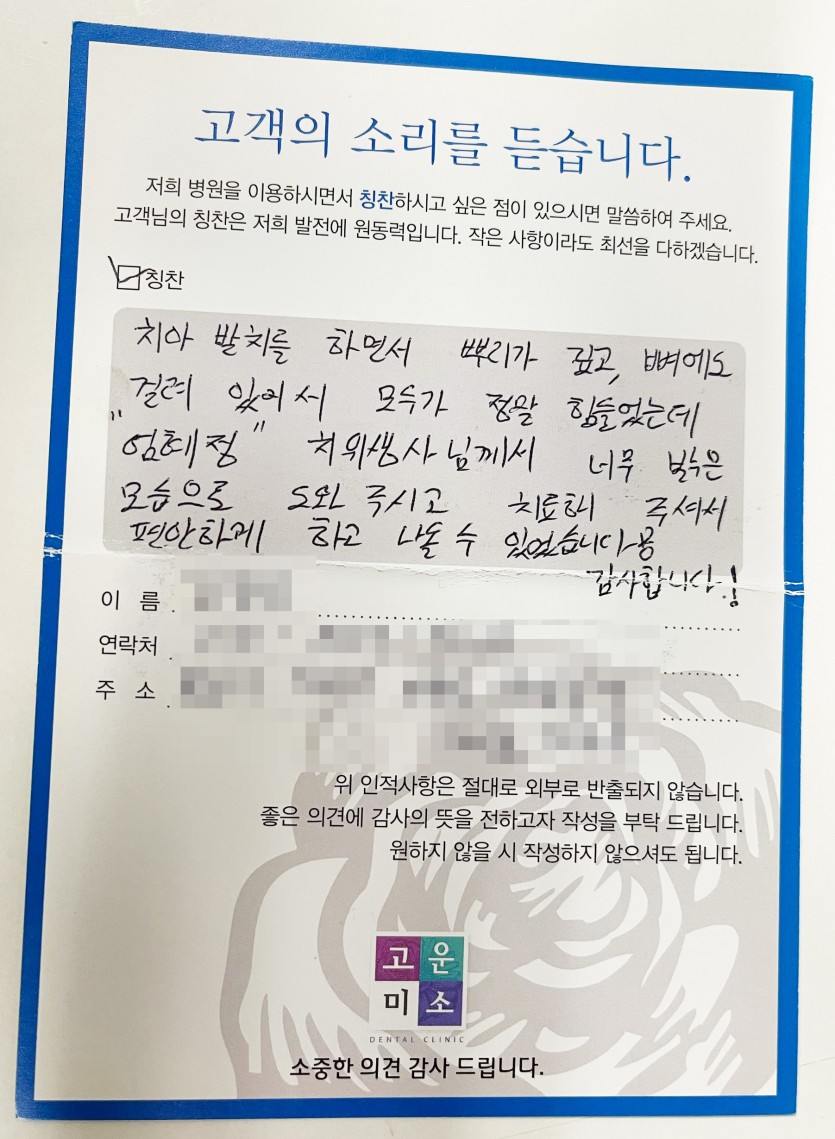 고객의 소리를 듣습니다.
저희 병원을 이용하시면서 칭찬하시고 싶은 점이 있으시면 말씀하여 주세요.
고객님의 칭찬은 저희 발전에 원동력입니다. 작은 사항이라도 최선을 다하겠습니다.
칭찬
치아 발치를 하면서 뿌리가 깊고, 뼈에도
걸려 있어서 모두가 정말 힘들었는데
"엄혜정" 치위생사님께서 너무 밝은
모습으로 도와주시고 치료해 주셔서
편안하게 하고 나올 수 있었습니다용
감사합니다!
이 름
연락처
주 소
위 인적사항은 절대로 외부로 반출되지 않습니다.
좋은 의견에 감사의 뜻을 전하고자 작성을 부탁 드립니다.
원하지 않을 시 작성하지 않으셔도 됩니다.
고운
미소
DENTAL CLINIC
소중한 의견 감사 드립니다.